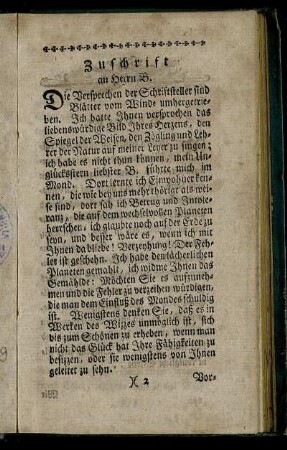 Zuschrift
an Herrn B.
Die Versprechen der Schriftsteller sind
Blätter vom Winde umhergetrie-
ben. Ich hatte Ihnen versprochen das
liebenswürdige Bild Ihres Herzens, den
Spiegel der Weisen, den Zögling und Leh-
rer der Natur auf meiner Leyer zu singen;
ich habe es nicht thun können, mein Un-
glücksstern liebster B. führte mich im
Mond. Dort lernte ich Einwohner ken-
nen, die wie bey uns mehr thörigt als wei-
se sind, dort sah ich Betrug und Intole-
ranz, die auf dem wechselvollen Planeten
herrschen, ich glaubte noch auf der Erde zu
seyn, und besser wäre es, wenn ich mit
Ihnen da bliebe: Verzeyhung! Der Feh-
ler ist geschehn. Ich habe den lächerlichen
Planeten gemahlt, ich widme Ihnen das
Gemählde: Möchten Sie es aufzuneh-
men und die Fehler zu verzeihen würdigen,
die man dem Einfluß des Mondes schuldig
ist. Wenigstens denken Sie, daß es in
Werken des Wizes unmöglich ist, sich
bis zum Schönen zu erheben, wenn man
nicht das Glück hat Ihre Fähigkeiten zu
besizen, oder sie wenigstens von Ihnen
geleitet zu sehn.
)( 2 Vor-